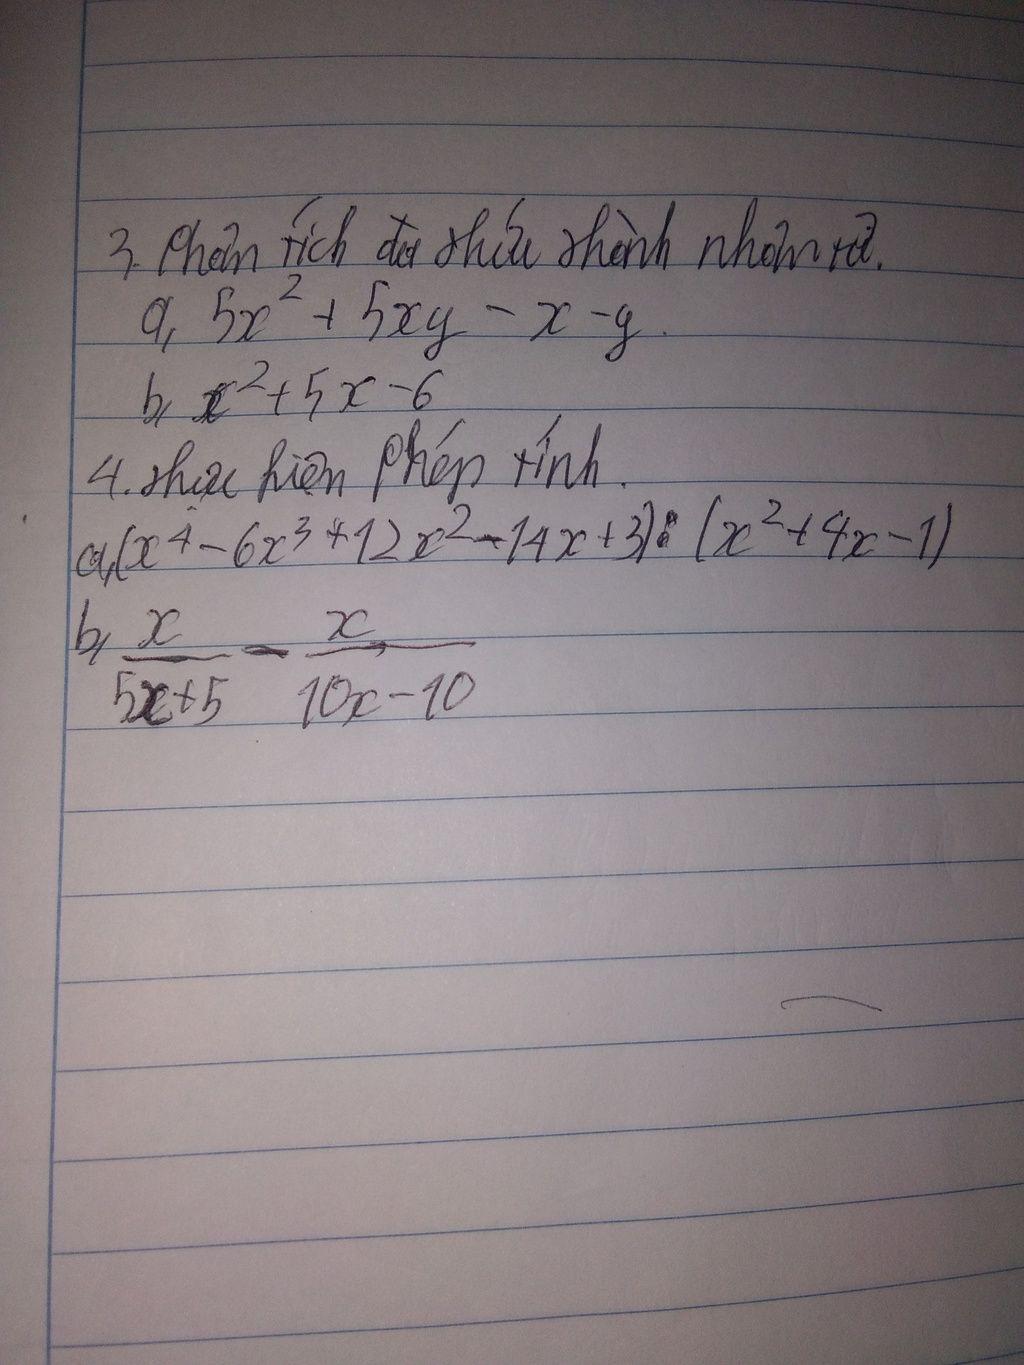 3. Phân tích đa thức thành nhân tử.
a, 5x² + 5xy - x - y.
b, x² + 5x - 6
4. Thực hiện phép tính.
a, (x⁴ - 6x³ + 12x² - 14x + 3) : (x² + 4x - 1)
b, x/(5x+5) - x/(10x-10)